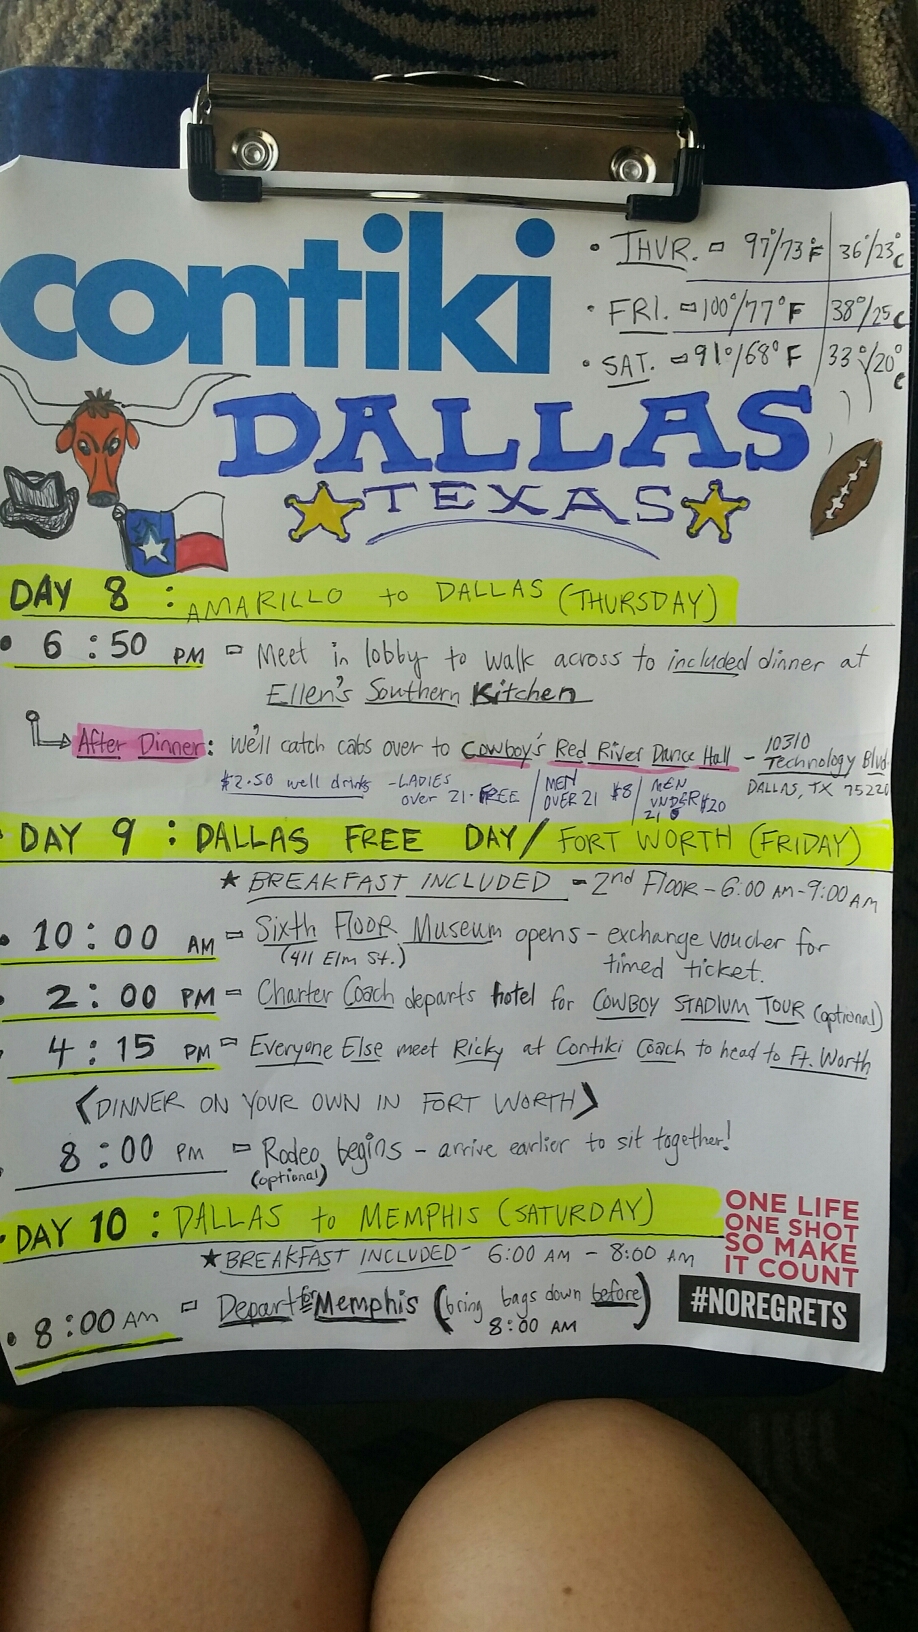 contiki
• THUR. = 97°/73°F | 36°/23°C
• FRI. = 100°/77°F | 38°/25C
• SAT. = 91°/68°F | 33°/20°C
DALLAS
TEXAS
DAY 8 : AMARILLO to DALLAS (THURSDAY)
• 6:50 PM = Meet in lobby to walk across to included dinner at
Ellen's Southern Kitchen
After Dinner: We'll catch cabs over to Cowboy's Red River Dance Hall - 10310
Technology Blvd.
DALLAS, TX 75220
$2.50 well drinks - LADIES over 21 - FREE / MEN OVER 21 $8 / MEN UNDER 21 $20
DAY 9 : DALLAS FREE DAY/ FORT WORTH (FRIDAY)
★ BREAKFAST INCLUDED - 2nd FLOOR - 6:00 AM - 9:00 AM
• 10:00 AM = Sixth Floor Museum opens - exchange voucher for
(411 Elm St.) timed ticket.
• 2:00 PM = Charter Coach departs hotel for COWBOY STADIUM TOUR (optional)
• 4:15 PM = Everyone Else meet Ricky at Contiki Coach to head to Ft. Worth
<DINNER ON YOUR OWN IN FORT WORTH>
8:00 PM = Rodeo begins - arrive earlier to sit together!
(optional)
• DAY 10 : DALLAS to MEMPHIS (SATURDAY)
★ BREAKFAST INCLUDED - 6:00 AM - 8:00 AM
• 8:00 AM = Depart for Memphis (bring bags down before)
8:00 AM
ONE LIFE
ONE SHOT
SO MAKE
IT COUNT
#NOREGRETS